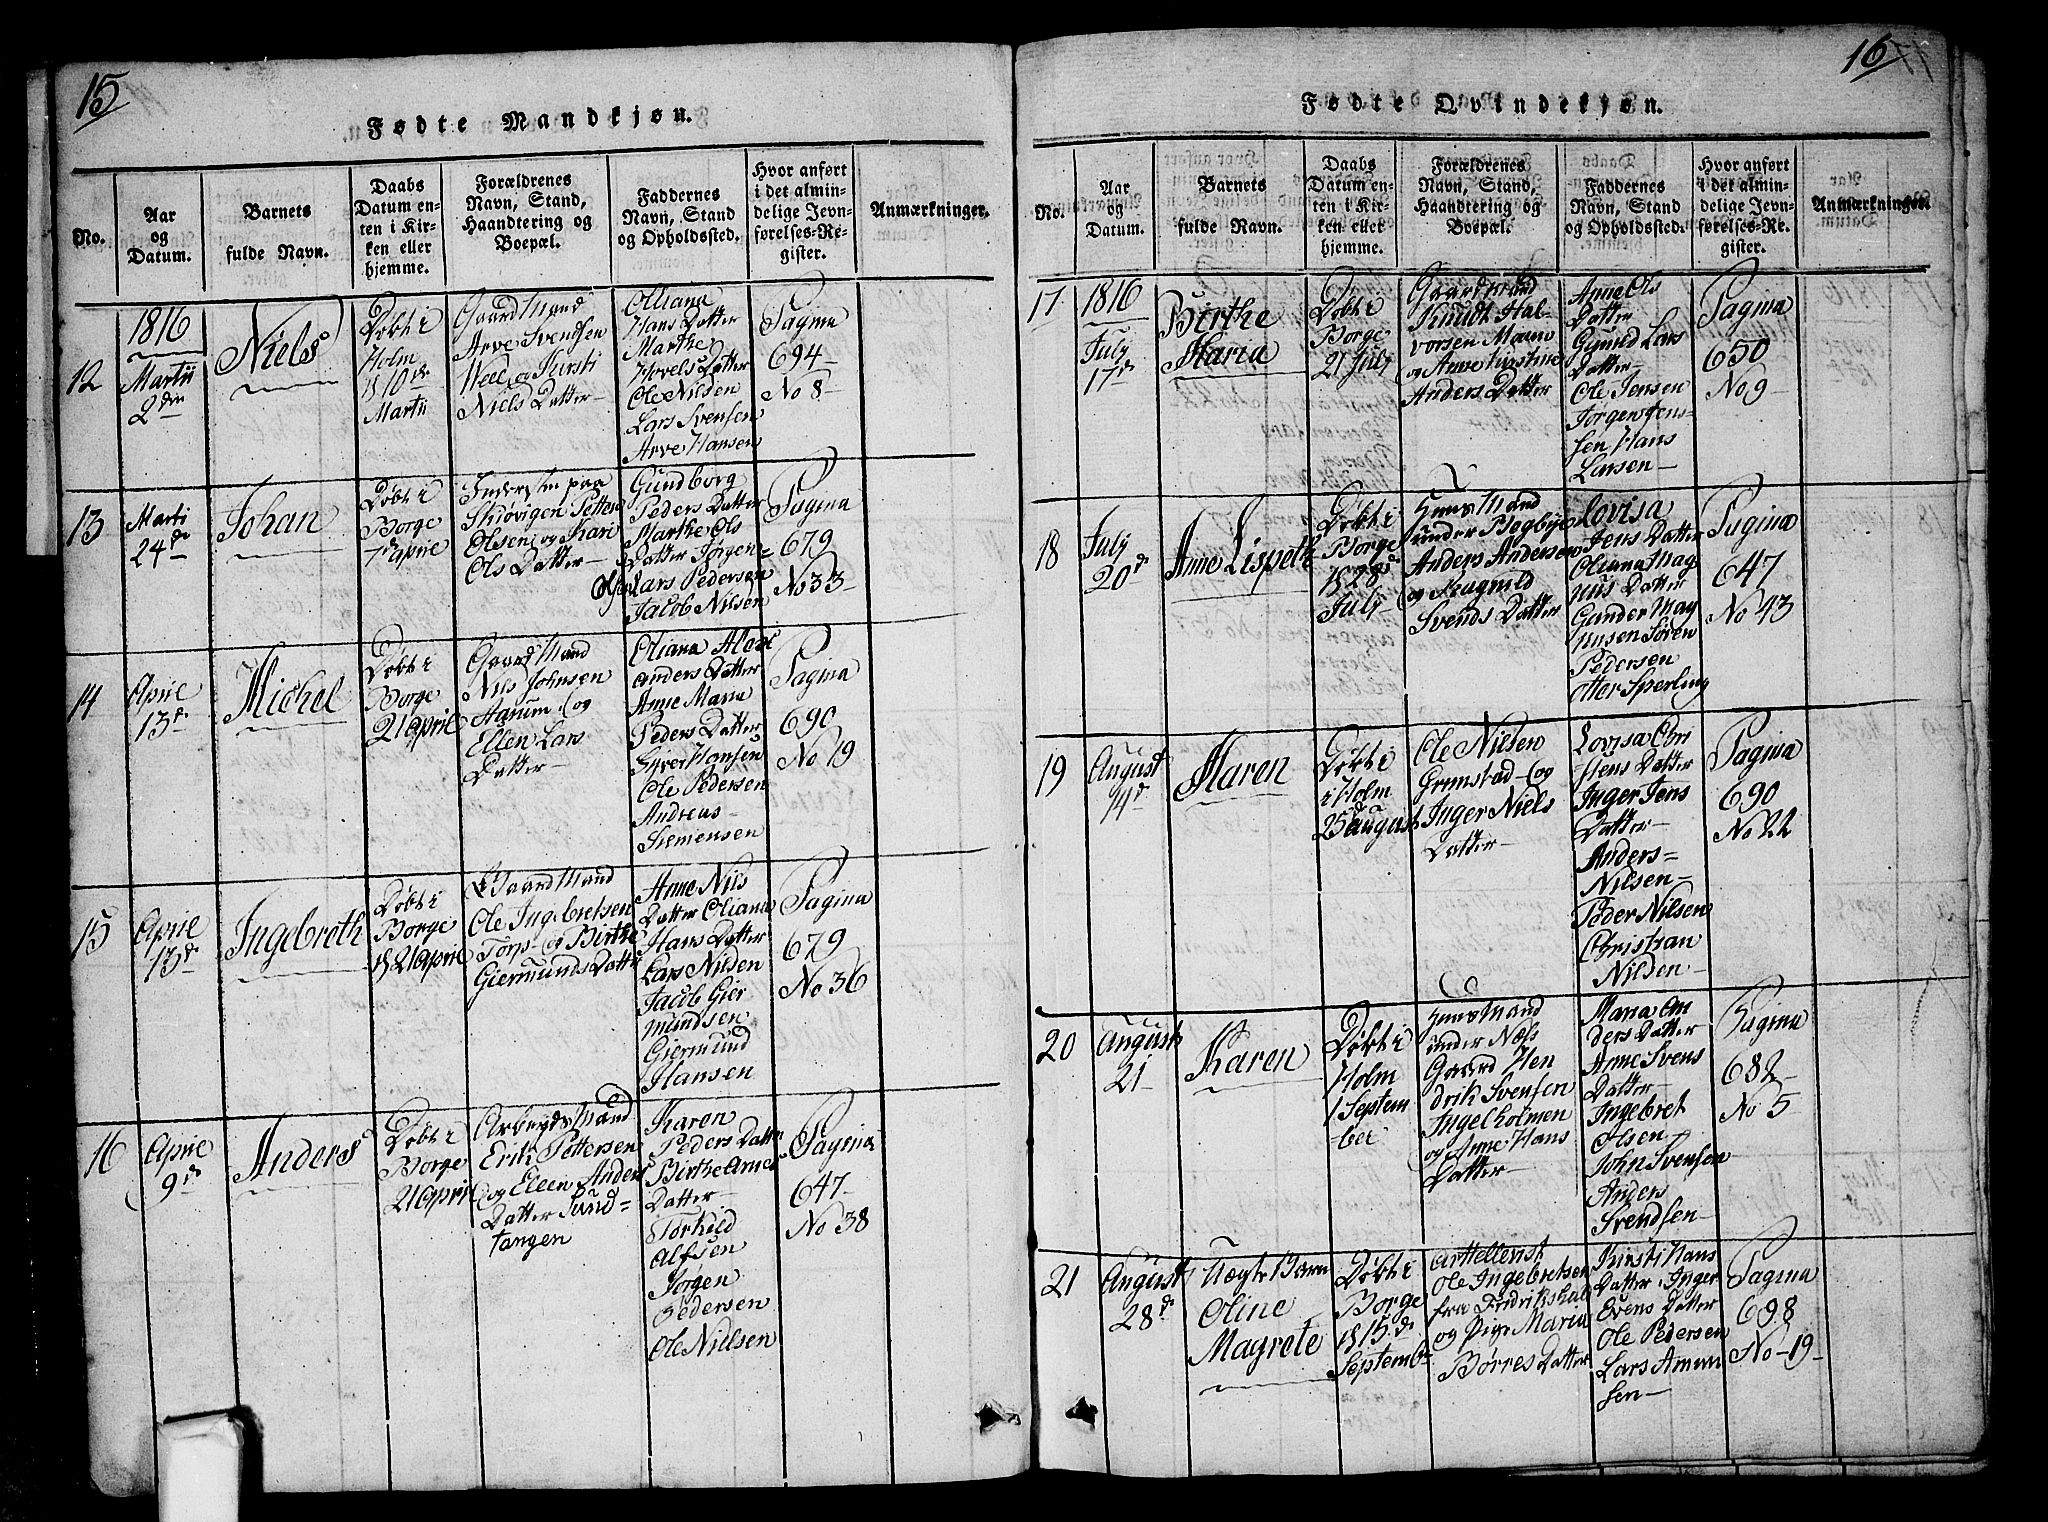 15
Fødte Mandkjøn.
No.
Aar
og
Datum.
Barnets
fulde Navn.
Daabs
Datum en-
ten i Kir-
ken eller
hjemme.
Forældrenes
Navn, Stand,
Haandtering og
Boepæl.
Faddernes
Navn, Stand
og Opholdssted.
Hvor anført
i det almin-
delige Jevn-
førelses-Re-
gister.
Anmærkninger.
12
1816
Martii
2den
Niels
Døbt i
Holm
d 10de
Martii
Gaard Mand
Arve Svendsen
og Kirsti
Niels Datter
Olliana
Hans Datter
Marthe
Hovels Datter
Ole Nilsen
Lars Svensen
Arve Hansen
Pagina
694
No 8
13
Marti
24de
Johan
Døbt i
Borge
7d April
Inderste paa
Skiøvigen Petter
Olsen og Kari
Ols Datter
Gundborg
Peders Datter
Marthe Ols
Datter Jørgen
Olsen Lars Pedersen
Jacob Nilsen
Pagina
679
No 33
14
April
13d
Michel
Døbt i
Borge
21 April
Gaard Mand
Nils Johnsen
Aarum og
Ellen Lars
Datter
Oliana Alex
anders Datter
Anne Maria
Peders Datter
Syver Hansen
Ole Pedersen
Andreas
Siemensen
Pagina
690
No 19
15
April
13d
Ingebreth
Døbt i
Borge
d 21 April
Gaard Mand
Ole Ingebretsen
Torp og Birthe
Giermunds Datter
Anne Nils
Datter Oliana
Hans Datter
Lars Nilsen
Jacob Gier
mundsen
Giermund
Hansen
Pagina
679
No 36
16
April
9d
Anders
Døbt i
Borge
21 April
Arbeyds Mand
Erik Pettersen
og Ellen Anders
Datter Sund
tangen
Karen
Peders Datter
Birthe Arnes
Datter
Torkild
Alfsen
Jørgen
Pedersen
Ole Nielsen
Pagina
647
No 38
16
Fødte Qvindekjøn.
No.
Aar
og
Datum.
Barnets
fulde Navn.
Daabs
Datum en-
ten i Kir-
ken eller
hjemme.
Forældrenes
Navn, Stand,
Haandtering og
Boepæl.
Faddernes
Navn, Stand
og Opholdssted.
Hvor anført
i det almin-
delige Jevn-
førelses-Re-
gister.
Anmærkninger.
17
1816
Julj
17d
Birthe
Maria
Døbt i
Borge
21 Julj
Gaardmand
Knudt Hal-
vorsen Moum
og Anne Kirstine
Anders Datter
Anne Ols
Datter
Gunild Lars
Datter
Ole Jensen
Jørgen Jens-
sen Hans
Larsen
Pagina
650
No 9
18
Julj
20d
Anne Lispeth
Døbt i
Borge
d 28d
Julj
Huus Mand
under Begbye
Anders Andersen
og Ragnild
Svends Datter
Lovisa
Jens Datter
Oliana Mag
nus Datter
Gunder Mag
nusen Søren
Pedersen
Otter Sperling
Pagina
647
No 43
19
August
14d
Maren
Døbt i
i Holm
25de August
Ole Nilsen
Grimstad og
Inger Niels
Datter
Lovisa Chri
stens Datter
Inger Jens
Datter
Anders
Nilsen
Peder Nilsen
Christian
Nilsen
Pagina
690
No 22
20
August
21
Karen
Døbt i
Holm
1 Septem
ber
Huus Mand
under Næss
Gaard Hen
drik Svensen
Ingelholmen
og Anne Hans
Datter
Maria An
ders Datter
Anne Svens
Datter
Ingebret
Olsen
John Svensen
Anders
Svendsen
Pagina
682
No 5
21
August
28de
Uægte Barn
Oline
Magrete
Døbt i
Borge
d 15de
September
Arttellerist
Ole Ingebretsen
fra Fridrikshal
og Pige Maria
Børres Datter
Kirsti Hans
Datter Inger
Evens Datter
Ole Pedersen
Lars Amun
sen
Pagina
698
No 19